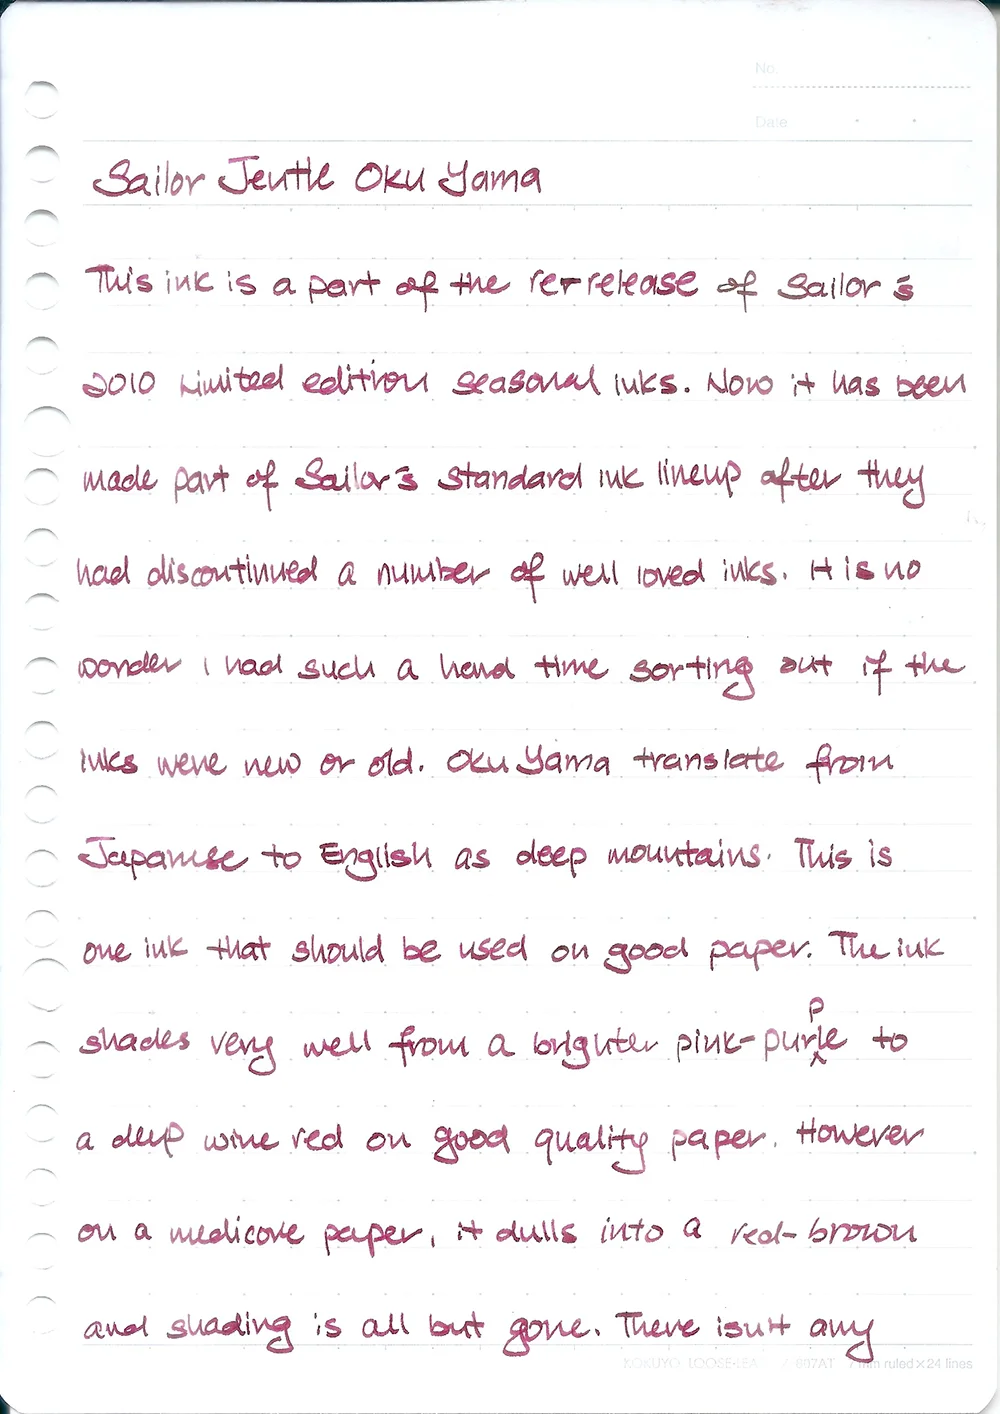 No.
Date
Sailor Jentle Oku Yama
This ink is a part of the re-release of Sailor's
2010 Limited edition seasonal inks. Now it has been
made part of Sailor's standard ink lineup after they
had discontinued a number of well loved inks. It is no
wonder I had such a hard time sorting out if the
inks were new or old. Oku Yama translate from
Japanese to English as deep mountains. This is
one ink that should be used on good paper. The ink
shades very well from a brighter pink-purple to
a deep wine red on good quality paper. However
on a medicore paper, it dulls into a red-brown
and shading is all but gone. There isn't any
KOKUYO LOOSE-LEA 807AT 7 mm ruled×24 lines